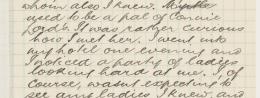 whom also I knew.
used to be a pal of Connie
Lord's. It was rather curious
how I met her. I went into
my hotel one evening and
I noticed a party of ladies
looking hard at me. I, of
course, wasn't expecting to
see any ladies I knew, and